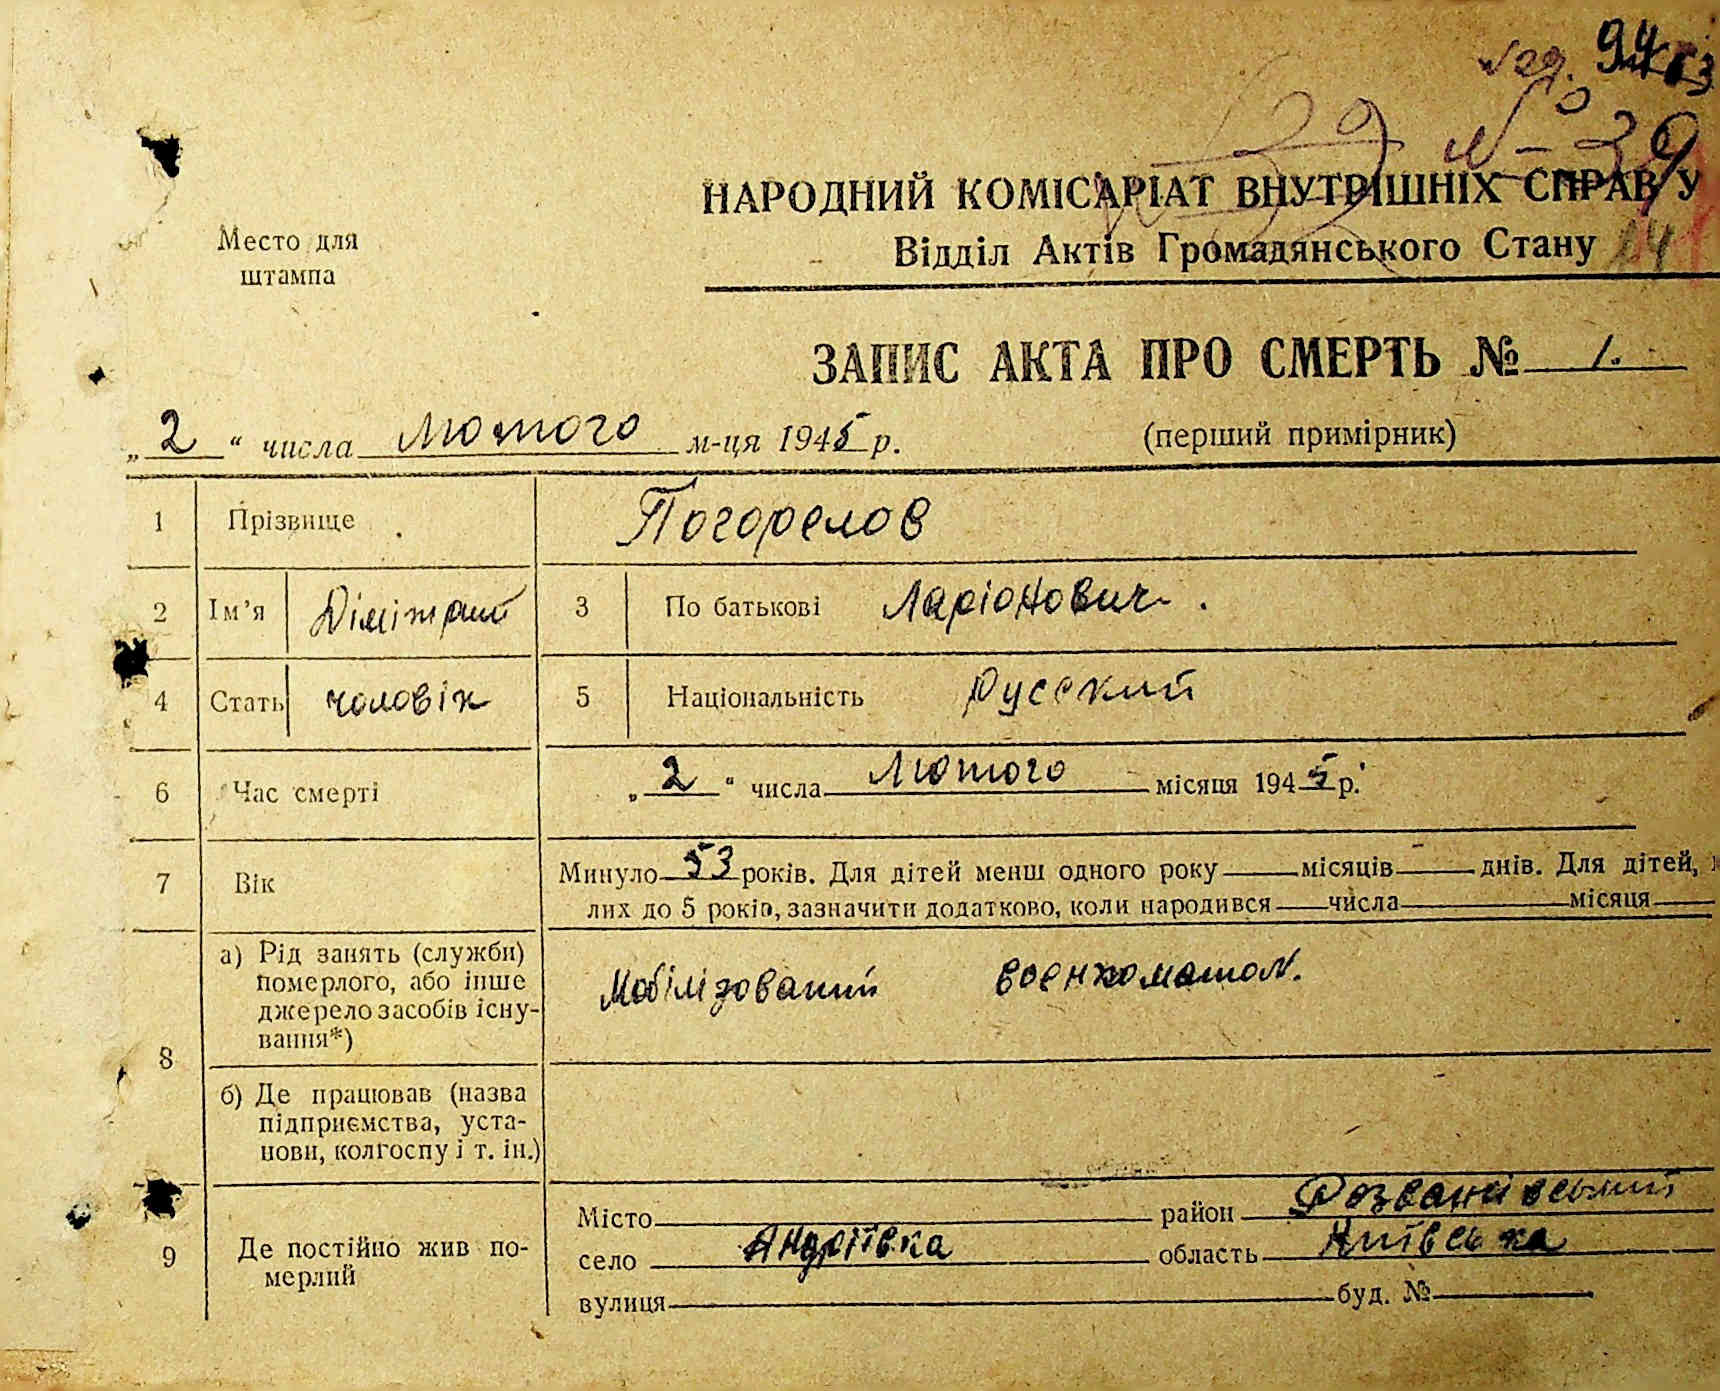 9453
№ 39
НАРОДНИЙ КОМІСАРІАТ ВНУТРІШНІХ СПРАВ У
Место для
штампа
Відділ Актів Громадянського Стану 14
ЗАПИС АКТА ПРО СМЕРТЬ № 1.
„2“ числа Лютого м-ця 1945 р. (перший примірник)
1 Прізвище Погорелов
2 Ім’я Дімітрий 3 По батькові Ларіонович.
4 Стать чоловік 5 Національність Русский
6 Час смерті „2“ числа Лютого місяця 1945 р.
7 Вік Минуло 53 років. Для дітей менш одного року місяців днів. Для дітей,
лих до 5 років, зазначити додатково, коли народився числа місяця
8 а) Рід занять (служби)
померлого, або інше
джерело засобів існу-
вання*)
Мобілізований военкоматом.
б) Де працював (назва
підприємства, уста-
нови, колгоспу і т. ін.)
9 Де постійно жив по-
мерлий
Місто район Розваживський
село Андріївка область Київська
вулиця буд. №